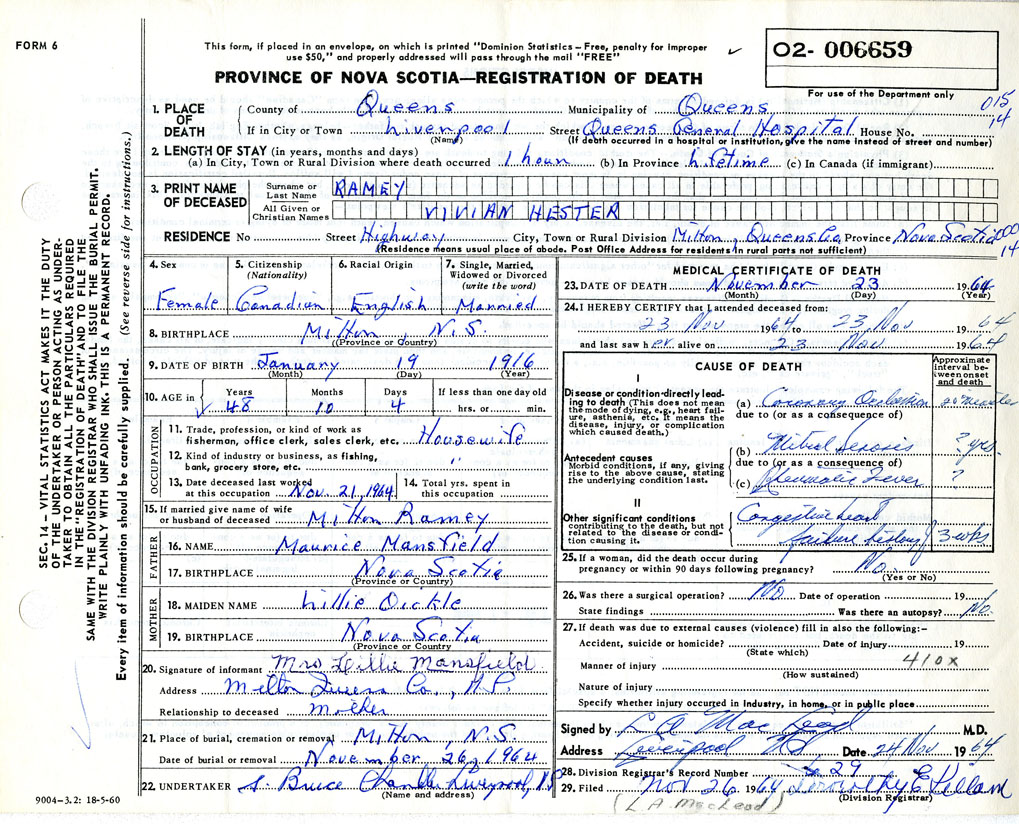 FORM 6
This form, if placed in an envelope, on which is printed "Dominion Statistics – Free, penalty for improper
use $50," and properly addressed will pass through the mail "FREE"
PROVINCE OF NOVA SCOTIA—REGISTRATION OF DEATH
O2- 006659
For use of the Department only
015
14
1. PLACE OF DEATH
County of Queens Municipality of Queens
If in City or Town Liverpool Street Queens General Hospital House No.
(Name) (If death occurred in a hospital or institution, give the name instead of street and number)
2. LENGTH OF STAY (in years, months and days)
(a) In City, Town or Rural Division where death occurred 1 hour (b) In Province Lifetime (c) In Canada (if immigrant)
3. PRINT NAME OF DECEASED
Surname or Last Name RAMEY
All Given or Christian Names VIVIAN HESTER
RESIDENCE No Street Highway City, Town or Rural Division Milton, Queens Co Province Nova Scotia
000
14
(Residence means usual place of abode. Post Office Address for residents in rural parts not sufficient)
4. Sex Female
5. Citizenship (Nationality) Canadian
6. Racial Origin English
7. Single, Married, Widowed or Divorced (write the word) Married
8. BIRTHPLACE Milton, N.S.
(Province or Country)
9. DATE OF BIRTH January 19 1916
(Month) (Day) (Year)
10. AGE in Years 48 Months 10 Days 4 If less than one day old hrs. or min.
OCCUPATION
11. Trade, profession, or kind of work as fisherman, office clerk, sales clerk, etc. Housewife
12. Kind of industry or business, as fishing, bank, grocery store, etc. "
13. Date deceased last worked at this occupation Nov. 21, 1964
14. Total yrs. spent in this occupation
15. If married give name of wife or husband of deceased Milton Ramey
FATHER
16. NAME Maurice Mansfield
17. BIRTHPLACE Nova Scotia
(Province or Country)
MOTHER
18. MAIDEN NAME Lillie Dickie
19. BIRTHPLACE Nova Scotia
(Province or Country)
20. Signature of informant Mrs Lillie Mansfield
Address Milton Queens Co.,
Relationship to deceased Mother
21. Place of burial, cremation or removal Milton, N.S.
Date of burial or removal November 26, 1964
22. UNDERTAKER S. Bruce Chandler Liverpool, N.S
(Name and address)
9004–3.2: 18-5-60
MEDICAL CERTIFICATE OF DEATH
23. DATE OF DEATH November 23 1964
(Month) (Day) (Year)
24. I HEREBY CERTIFY that I attended deceased from:
23 Nov 1964 to 23 Nov 1964
and last saw her alive on 23 Nov 1964
CAUSE OF DEATH
Approximate interval between onset and death
I
Disease or condition directly leading to death (This does not mean the mode of dying, e.g., heart failure, asthenia, etc. It means the disease, injury, or complication which caused death.)
(a) Coronary Occlusion 20 minutes
due to (or as a consequence of)
Antecedent causes
Morbid conditions, if any, giving rise to the above cause, stating the underlying condition last.
(b) Mitral Stenosis ? yrs.
due to (or as a consequence of)
(c) Rheumatic Fever ?
II
Other significant conditions contributing to the death, but not related to the disease or condition causing it.
Congestive heart
failure 3 wks
25. If a woman, did the death occur during pregnancy or within 90 days following pregnancy? No
(Yes or No)
26. Was there a surgical operation? No Date of operation 19
State findings Was there an autopsy? No
27. If death was due to external causes (violence) fill in also the following:–
Accident, suicide or homicide? Date of injury 19
(State which)
410x
Manner of injury
(How sustained)
Nature of injury
Specify whether injury occurred in industry, in home, or in public place
Signed by L A MacLeod M.D.
Address Liverpool NS Date 24 Nov 1964
28. Division Registrar's Record Number 29
29. Filed Nov 26 1964 Dorothy E Killam
(Division Registrar)
(L.A. MacLeod)
SEC. 14 – VITAL STATISTICS ACT MAKES IT THE DUTY
OF THE UNDERTAKER OR PERSON ACTING AS UNDER-
TAKER TO OBTAIN ALL THE PARTICULARS REQUIRED
IN THE "REGISTRATION OF DEATH" AND TO FILE THE
SAME WITH THE DIVISION REGISTRAR WHO SHALL ISSUE THE BURIAL PERMIT.
WRITE PLAINLY WITH UNFADING INK. THIS IS A PERMANENT RECORD.
Every item of information should be carefully supplied. (See reverse side for instructions.)